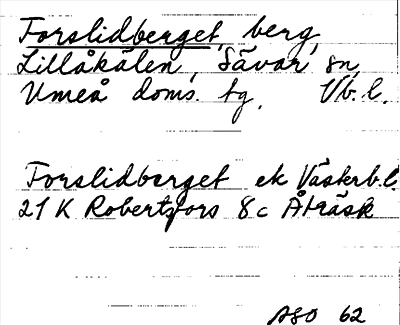 Forslidberget, berg,
Lillåkälen, Sävar sn,
Umeå doms. tg. Vb. l.
Forslidberget ek Västerb.l.
21 K Robertsfors 8 c Åträsk
ASO 62